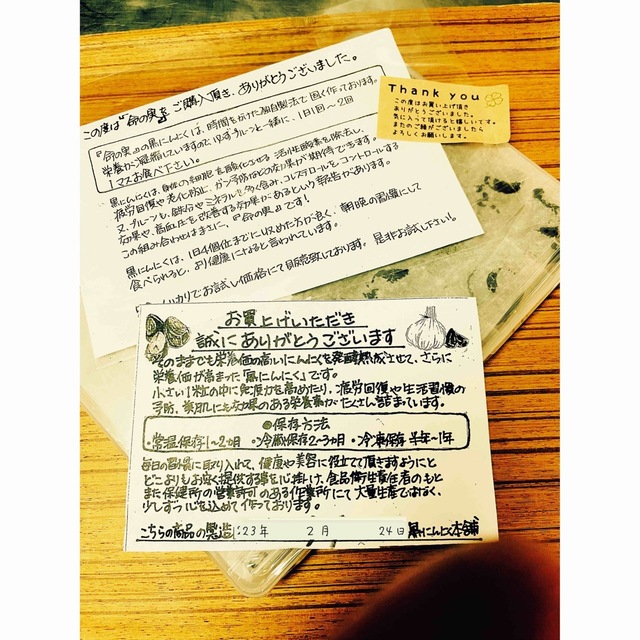 この度は『命の実』をご購入頂き、ありがとうございました。
『命の実』の黒にんにくは、時間を
栄養が凝縮していますので
1マスお食べ下さい。
黒にんにくは、身体の細胞を酸化させる活性酸素を除去し、
疲労回復や老化防止、ガン予防などの効果が期待できます。
又、プルーンも、鉄分やミネラルを多く含み、コレステロールをコントロールする
効果や、高血圧を改善する効果があるという報告があります。
この組み合わせはまさに、『命の実』です!
黒にんにくは、1日4個位までに収めた方が良く、朝晩の習慣にして
食べられると、より健康になると言われています。
お試し価格にて販売致しております。是非お試し下さい。
Thank you
この度はお買い上げ頂き
ありがとうございました。
気に入って頂けると嬉しいです。
またのご縁がございましたら
よろしくお願いします。
お買上げいただき
誠にありがとうございます
そのままでも栄養価の高いにんにくを発酵熟成させて、さらに
栄養価が高まった「黒にんにく」です。
小さい1粒の中に免疫力を高めたり、疲労回復や生活習慣の
予防、美肌にも効果のある栄養素がたくさん詰まっています。
◎保存方法
・常温保存1~2ヵ月 ・冷蔵保存2~3ヵ月 ・冷凍保存半年~1年
毎日の習慣に取り入れて、健康や美容に役立てて頂きますようにと
どこよりもお安く提供する事を心掛け、食品衛生責任者のもと
また保健所の営業許可のある作業所にて大量生産ではなく、
少しずつ心を込めて作っております。
こちらの商品の製造 23年 2月 24日 黒にんにく本舗